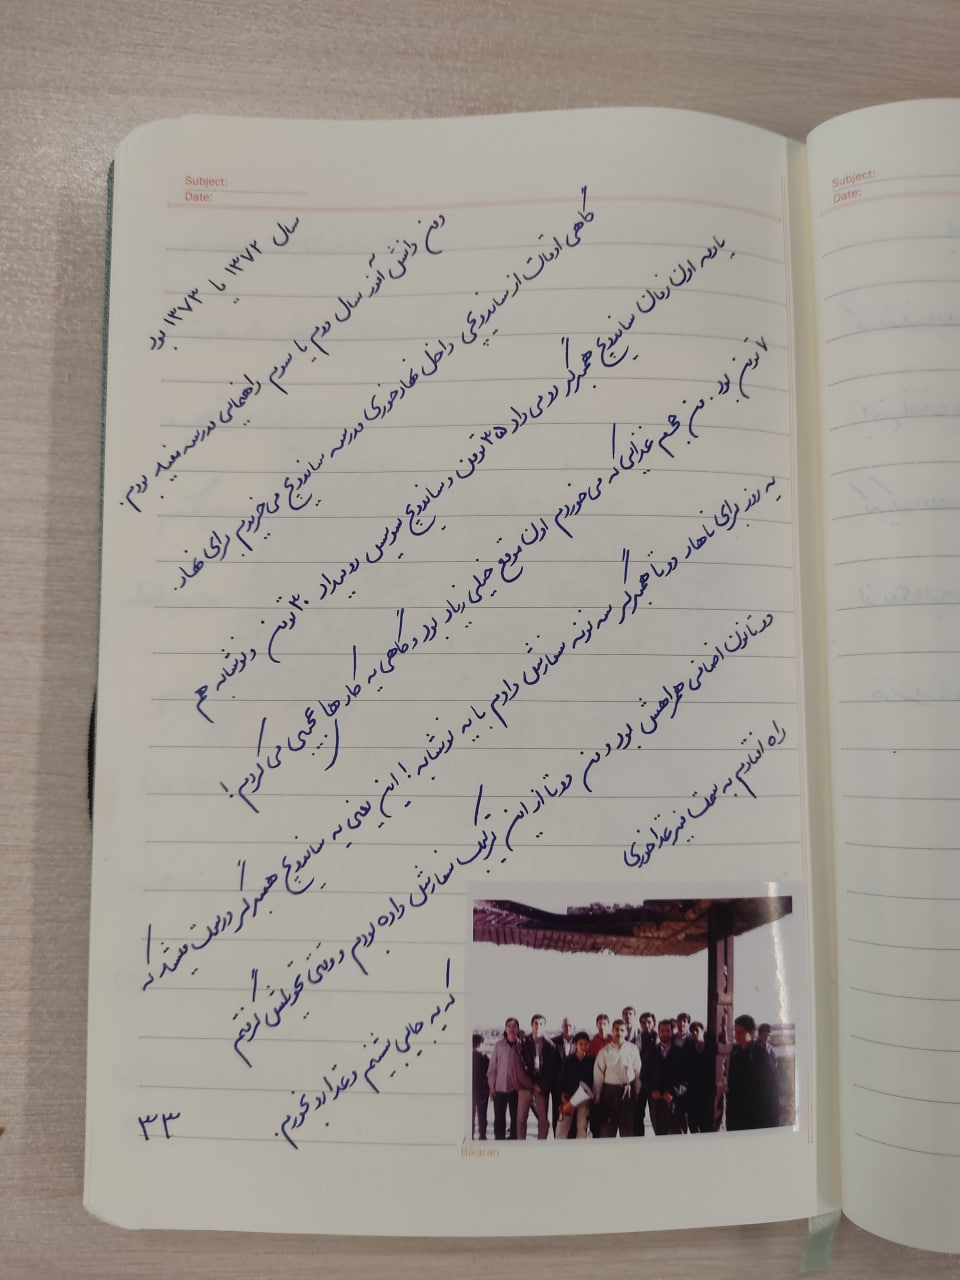 Subject:
Date:
سال ۱۳۷۲ یا ۱۳۷۳ بود
و من دانش آموز سال دوم یا سوم راهنمایی مدرسه مفید بودم.
گاهی اوقات از ساندویچی داخل نهارخوری مدرسه ساندویچ می‌خریدم برای نهار.
یادمه اون زمان ساندویچ همبرگر رو می داد ۳۵ تومن و ساندویچ سوسیس رو میداد ۳۰ تومن و نوشابه هم
۷ تومن بود. من حجم غذایی که می‌خوردم اون موقع خیلی زیاد بود و گاهی یه کارهای عجیبی می کردم!
یه روز برای ناهار دو تا همبرگر سه نونه سفارش دادم با یه نوشابه! این یعنی یه ساندویچ همبرگر درست میشد که
دو تا نون اضافی همراهش بود و من دو تا از این ترکیب سفارش داده بودم و وقتی تحویلش گرفتم
راه افتادم به سمت میز غذاخوری
که یه جایی بشینم و غذا رو بخورم.
۳۳
Bikaran
Subject:
Date: